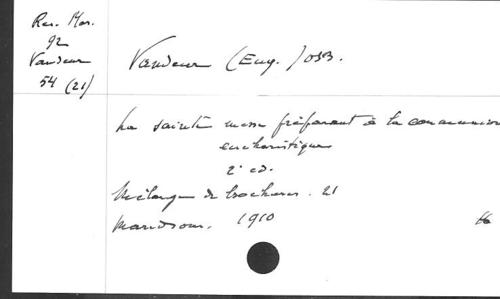 Res. Mor.
92
Vandeur
54 (21)
Vandeur (Eug.) OSB.
La sainte messe préparant à la communion
eucharistique
2e ed.
Mélanges de brochures. 21
Maredsous. 1910